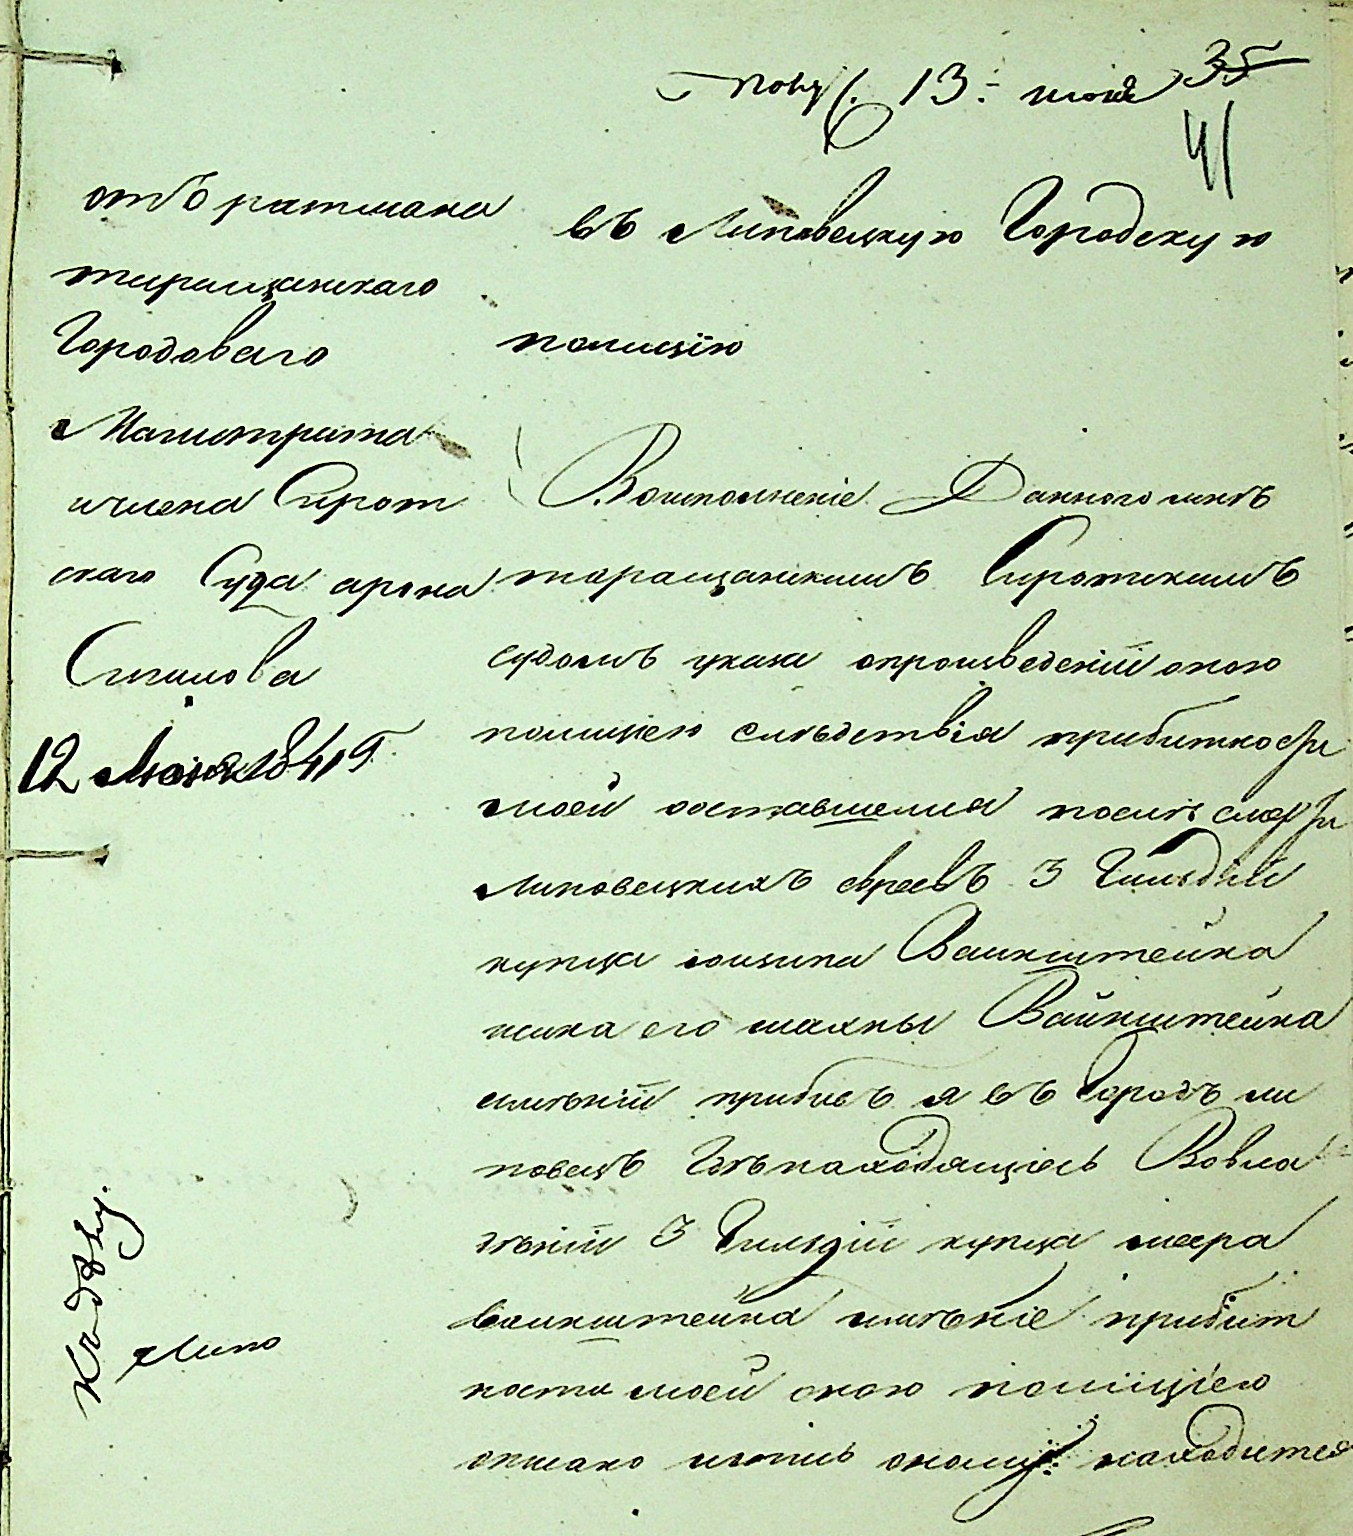 Полу. 13: июня 35
41
отъ ратмана
таращанскаго
Городоваго
Магистрата
и члена Сирот
скаго Суда арона
Сигалова
12 Июня 1841 г.
въ Липовецкую Городскую
полицію
Воисполненіе Данного мнѣ
таращанскимъ Сиротскимъ
судомъ указа опроизведеніи оною
полициею слѣдствія прибитности
моей оставшемся послѣ смерти
липовецкихъ евреевъ 3 Гильдіи
купца Ваинштейна
его шахны Вайнштейна
имѣніи прибивъ я въ Городъ ли
повецъ гдѣ находящіесь Вовла
дѣніи 3 Гильдіи купца меера
ваинштейна имѣніе прибит
ности моей оною полиціею
описано опись оному находится
Липо